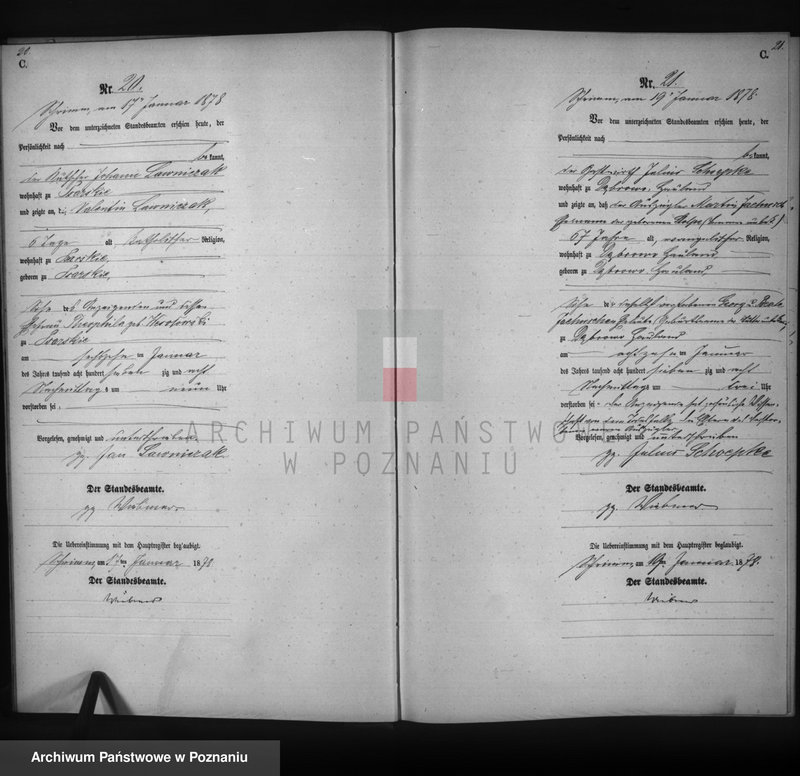 20.
C.
Nr. 20.
Schrimm, am 17ten Januar 1878.
Vor dem unterzeichneten Standesbeamten erschien heute, der
Persönlichkeit nach
bekannt,
der Johann Lawniczak
wohnhaft zu Psarskie
und zeigte an, daß Valentin Lawniczak,
6 Tage alt, katholischer Religion,
wohnhaft zu Psarskie,
geboren zu Psarskie,
Sohn des Anzeigenden und dessen
Ehefrau Theophila geb
zu Psarskie
am sechszehn ten Januar
des Jahres tausend acht hundert sieben zig und acht
Nachmittags um neun Uhr
verstorben sei.
Vorgelesen, genehmigt und unterschrieben
gz. Jan Lawniczak
Der Standesbeamte.
gz.
Die Uebereinstimmung mit dem Hauptregister beglaubigt.
Schrimm, am 17ten Januar 1878.
Der Standesbeamte.
21.
C.
Nr. 21.
Schrimm, am 19ten Januar 1878.
Vor dem unterzeichneten Standesbeamten erschien heute, der
Persönlichkeit nach
bekannt,
der Gastwirth Julius Schoepke
wohnhaft zu Dąbrowo Hauland
und zeigte an, daß der Auszügler Martin
67 Jahre alt, evangelischer Religion,
wohnhaft zu Dąbrowo Hauland,
geboren zu Dąbrowo Hauland,
Sohn der daselbst verstorbenen Georg u.
zu Dąbrowo Hauland
am achtzehn ten Januar
des Jahres tausend acht hundert sieben zig und acht
Nachmittags um drei Uhr
verstorben sei.
Vorgelesen, genehmigt und unterschrieben
gz. Julius Schoepke
Der Standesbeamte.
gz.
Die Uebereinstimmung mit dem Hauptregister beglaubigt.
Schrimm, am 19ten Januar 1878.
Der Standesbeamte.
ARCHIWUM PAŃSTWOWE
W POZNANIU
Archiwum Państwowe w Poznaniu